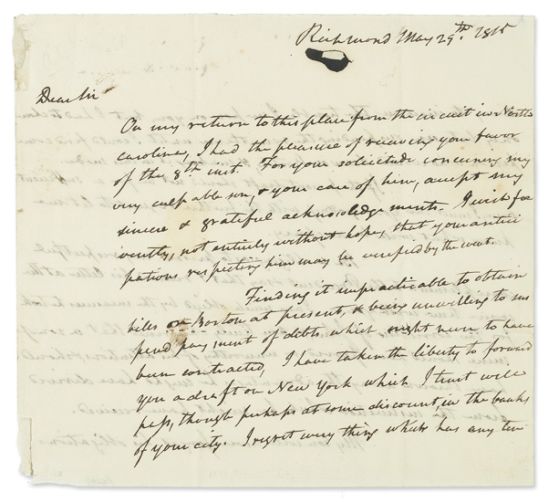 Richmond May 29th. 1815
Dear Sir
On my return to this place from the circuit in North
carolina, I had the pleasure of receiving your favor
of the 8th inst. For your solicitude concerning my
very culpable son, & your care of him, accept my
sincere & grateful acknowledgements. I wish fer
vently, not entirely without hope, that your antici
pations respecting him may be verified by the event.
Finding it impracticable to obtain
bills on Boston at present, & being unwilling to sus
pend payment of debts which ought never to have
been contracted, I have taken the liberty to forward
you a draft on New York which I trust will
pass, though perhaps at some discount, in the banks
of your city. I regret every thing which has any ten